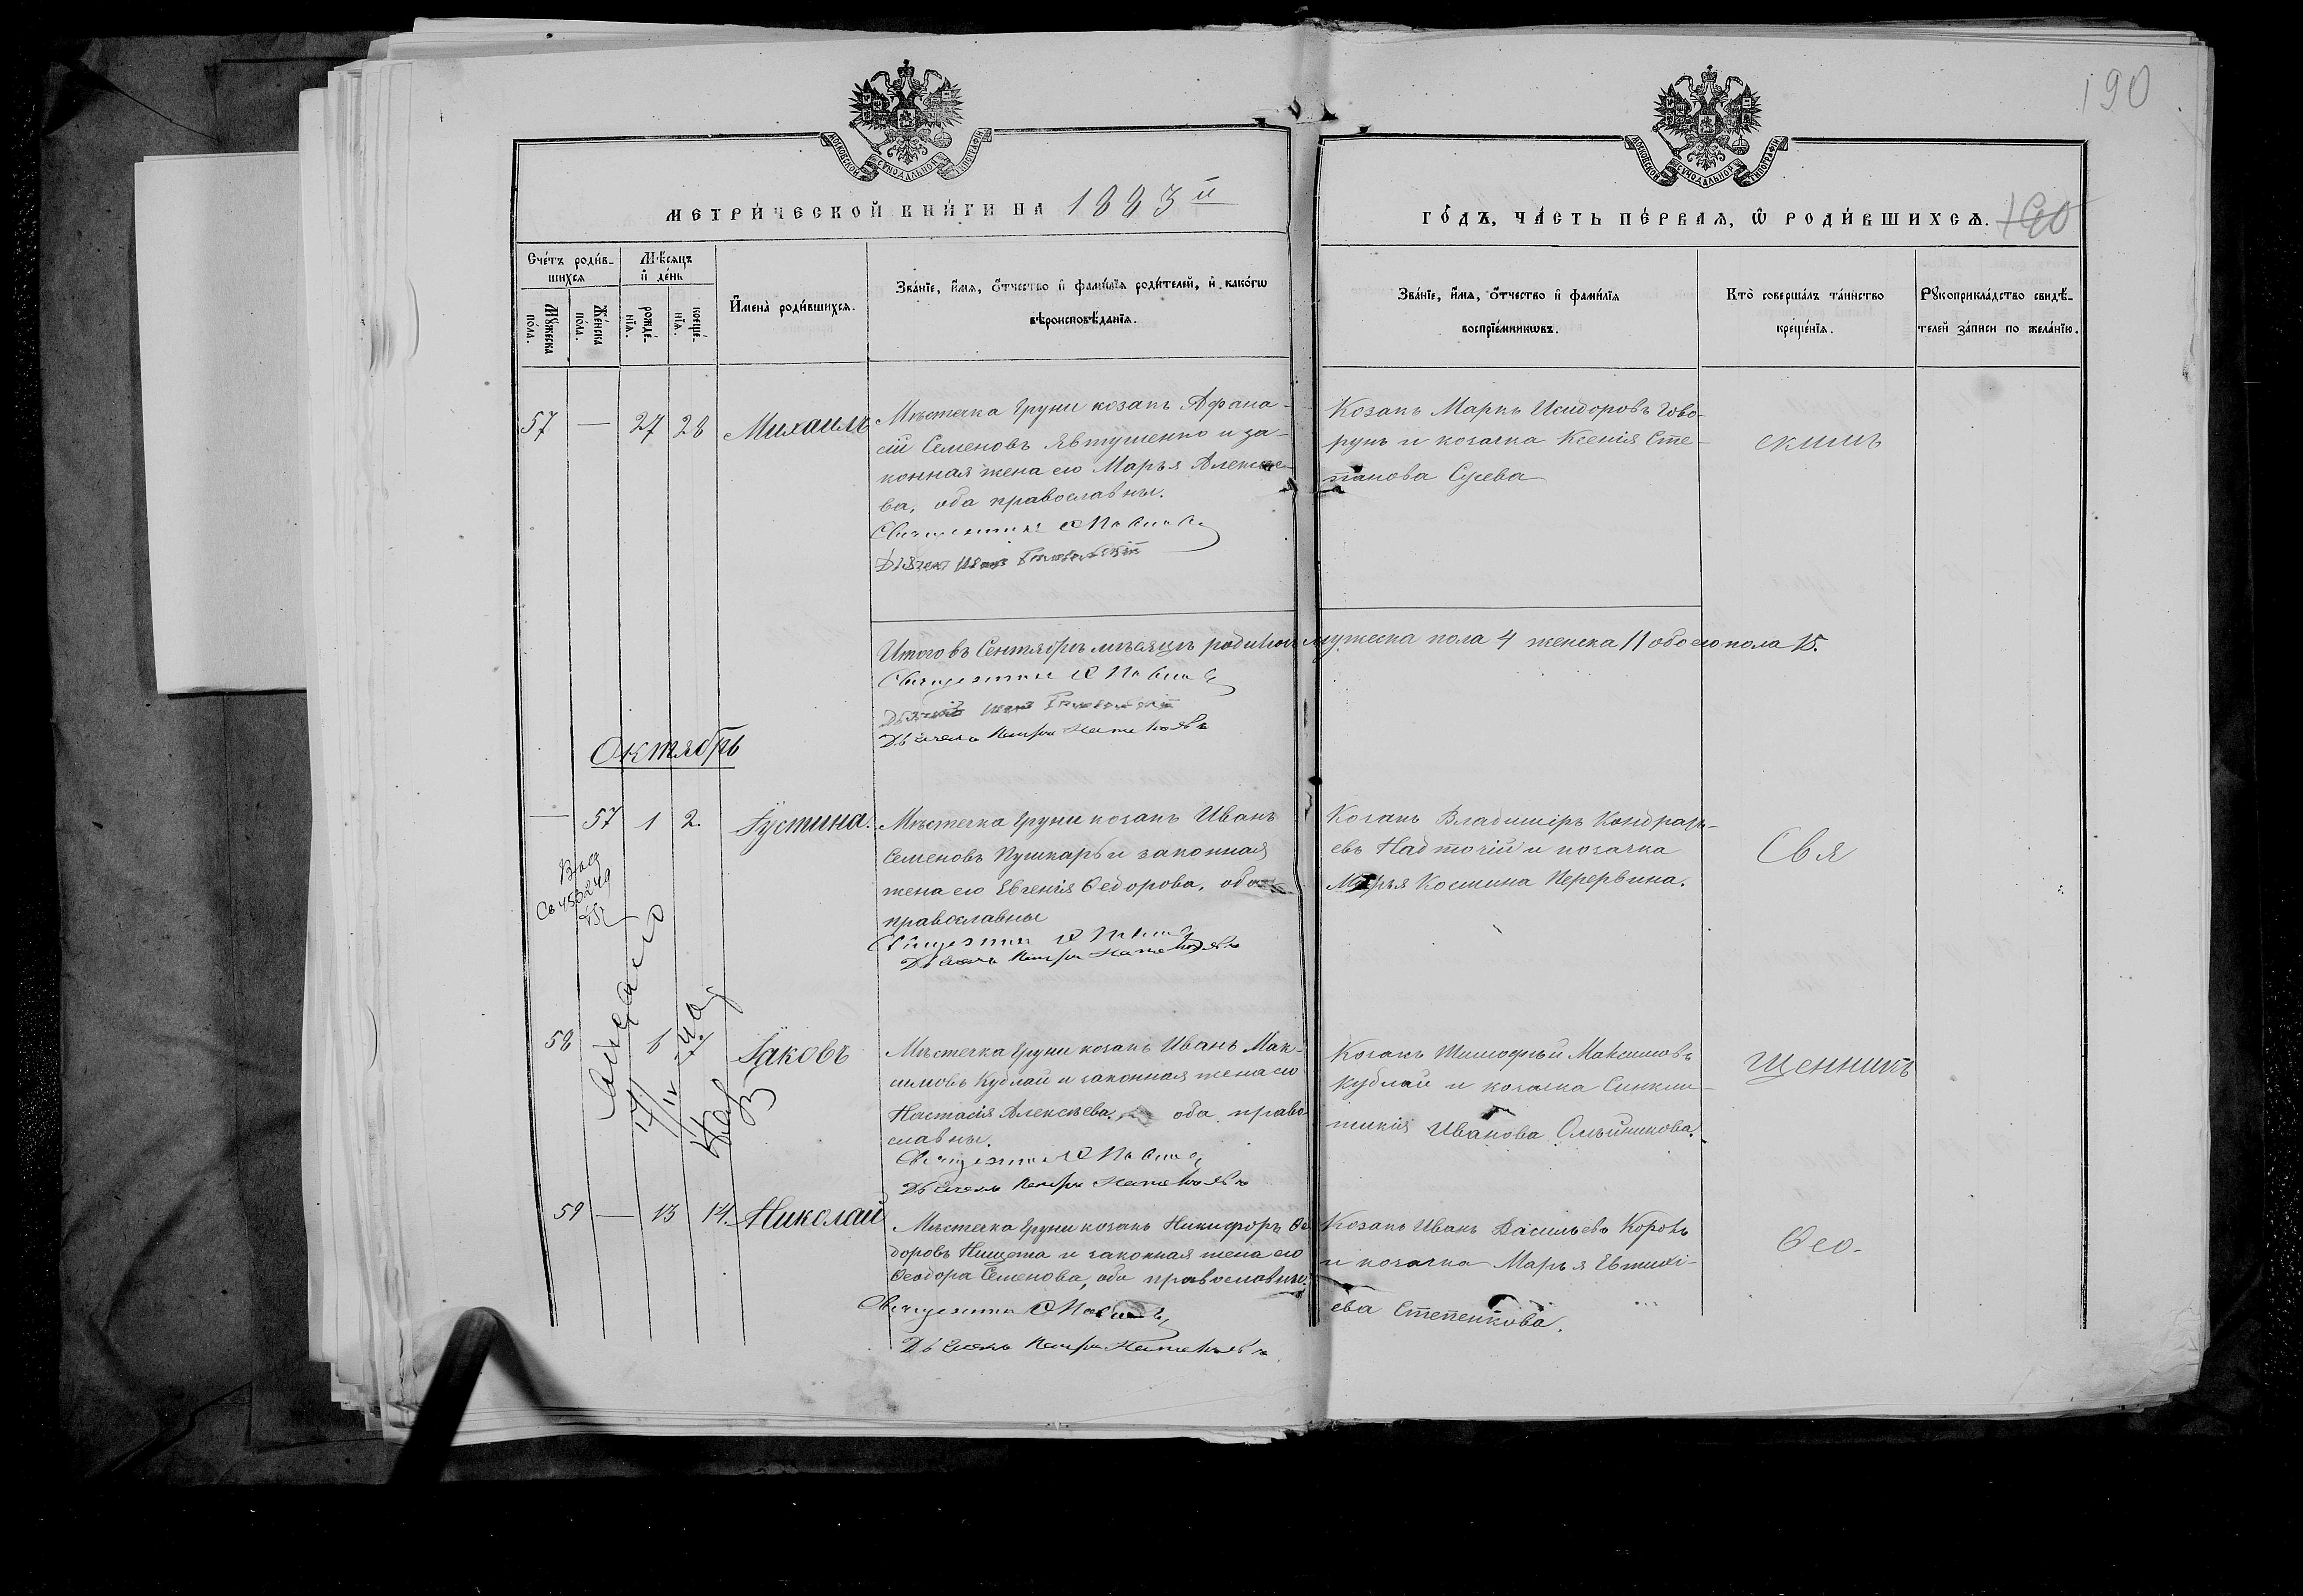 190
МОСКОВСКОЙ СѴНОДАЛЬНОЙ ТИПОГРАФІИ
МОСКОВСКОЙ СѴНОДАЛЬНОЙ ТИПОГРАФІИ
МЕТРИ́ЧЕСКОЙ КНИ́ГИ НА 1883й
ГО́ДЪ, ЧА́СТЬ ПЕ́РВАЯ, Ѡ РОДИ́ВШИХСЯ. 190
Сче́тъ роди́в-
шихся
Мꙋжеска по́ла.
Же́нска по́ла.
Мѣ́сяцъ
и де́нь
рожде́-
нїя.
креще́-
нїя.
И҆мена̀ роди́вшихся.
Зва́нїе, и҆́мя, ѻ҆́тчество и҆ фами́лїя роди́телей, и҆ како́гѡ
вѣроисповѣ́данїя.
Зва́нїе, и҆́мя, ѻ҆́тчество и҆ фами́лїя
воспрїе́мникѡвъ.
Кто̀ соверша́лъ та́инство
креще́нїя.
Рꙋкоприкла́дство свидѣ́-
телей за́писи по жела́нїю.
57 — 27 28 Михаилъ
Мѣстечка Груни козакъ Афана-
сій Семеновъ Явтушенко и за-
конная жена его Марья Алексѣе-
ва, оба православны.
Священникъ Ѳ Павлов
Дьячекъ Иванъ
Козакъ Маркъ Исидоровъ Гово-
рунъ и козачка Ксенія Сте-
панова Сусева
скимъ
Итого въ Сентябрѣ мѣсяцѣ родилось мужеска пола 4 женска 11 обоего пола 15.
Священникъ Ѳ Павлов
Дьячекъ Иванъ
Дьячекъ Петръ
Октябрь
— 57 1 2. Іустина.
Мѣстечка Груни козакъ Иванъ
Семеновъ Пушкарь и законная
жена его Евгенія Ѳедорова, оба
православны
Священникъ Ѳ Павлов
Дьячекъ Петръ
Козакъ Владиміръ Кондрать-
евъ Надточій и козачка
Марья Костина Перервина.
Свя
58 6 Іаковъ
Мѣстечка Груни козакъ Иванъ Мак-
симовъ Кублай и законная жена его
Настасія Алексѣева, оба право-
славны.
Священникъ Ѳ Павлов
Дьячекъ Петръ
Козакъ Тимофѣй Максимовъ
Кублай и козачка Синкли-
тикія Иванова Олѣйникова.
щенникъ
59 — 13 14. Николай
Мѣстечка Груни козакъ Никифоръ Ѳе-
доровъ Нищета и законная жена его
Ѳеодора Семенова, оба православны.
Священникъ Ѳ Павлов
Дьячекъ Петръ
Козакъ Иванъ Васильевъ Коровъ
и козачка Марья Евтихі-
ева Степенкова.
Ѳео-